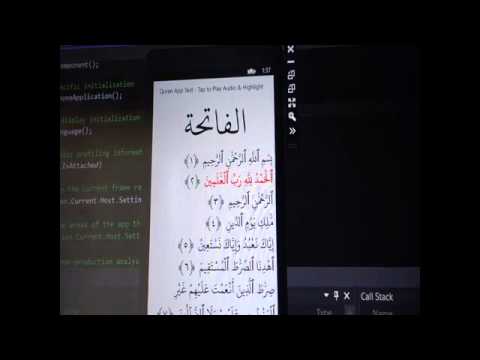 omponent();
ecific initialisation
oneApplication();
display initialisation
nguage();
ics profiling informat
IsAttached)
the current frame ra
on.Current.Host.Settin
areas of the app th
on.Current.Host.Setti
non-production analys
1:37
Quran App Test - Tap to Play Audio & Highlight
الفاتحة
بِسْمِ اللَّهِ الرَّحْمَٰنِ الرَّحِيمِ ﴿١﴾
الْحَمْدُ لِلَّهِ رَبِّ الْعَٰلَمِينَ ﴿٢﴾
الرَّحْمَٰنِ الرَّحِيمِ ﴿٣﴾
مَٰلِكِ يَوْمِ الدِّينِ ﴿٤﴾
إِيَّاكَ نَعْبُدُ وَإِيَّاكَ نَسْتَعِينُ ﴿٥﴾
اهْدِنَا الصِّرَٰطَ الْمُسْتَقِيمَ ﴿٦﴾
صِرَٰطَ الَّذِينَ أَنْعَمْتَ عَلَيْهِمْ غَيْرِ
Call Stack
Type
Name